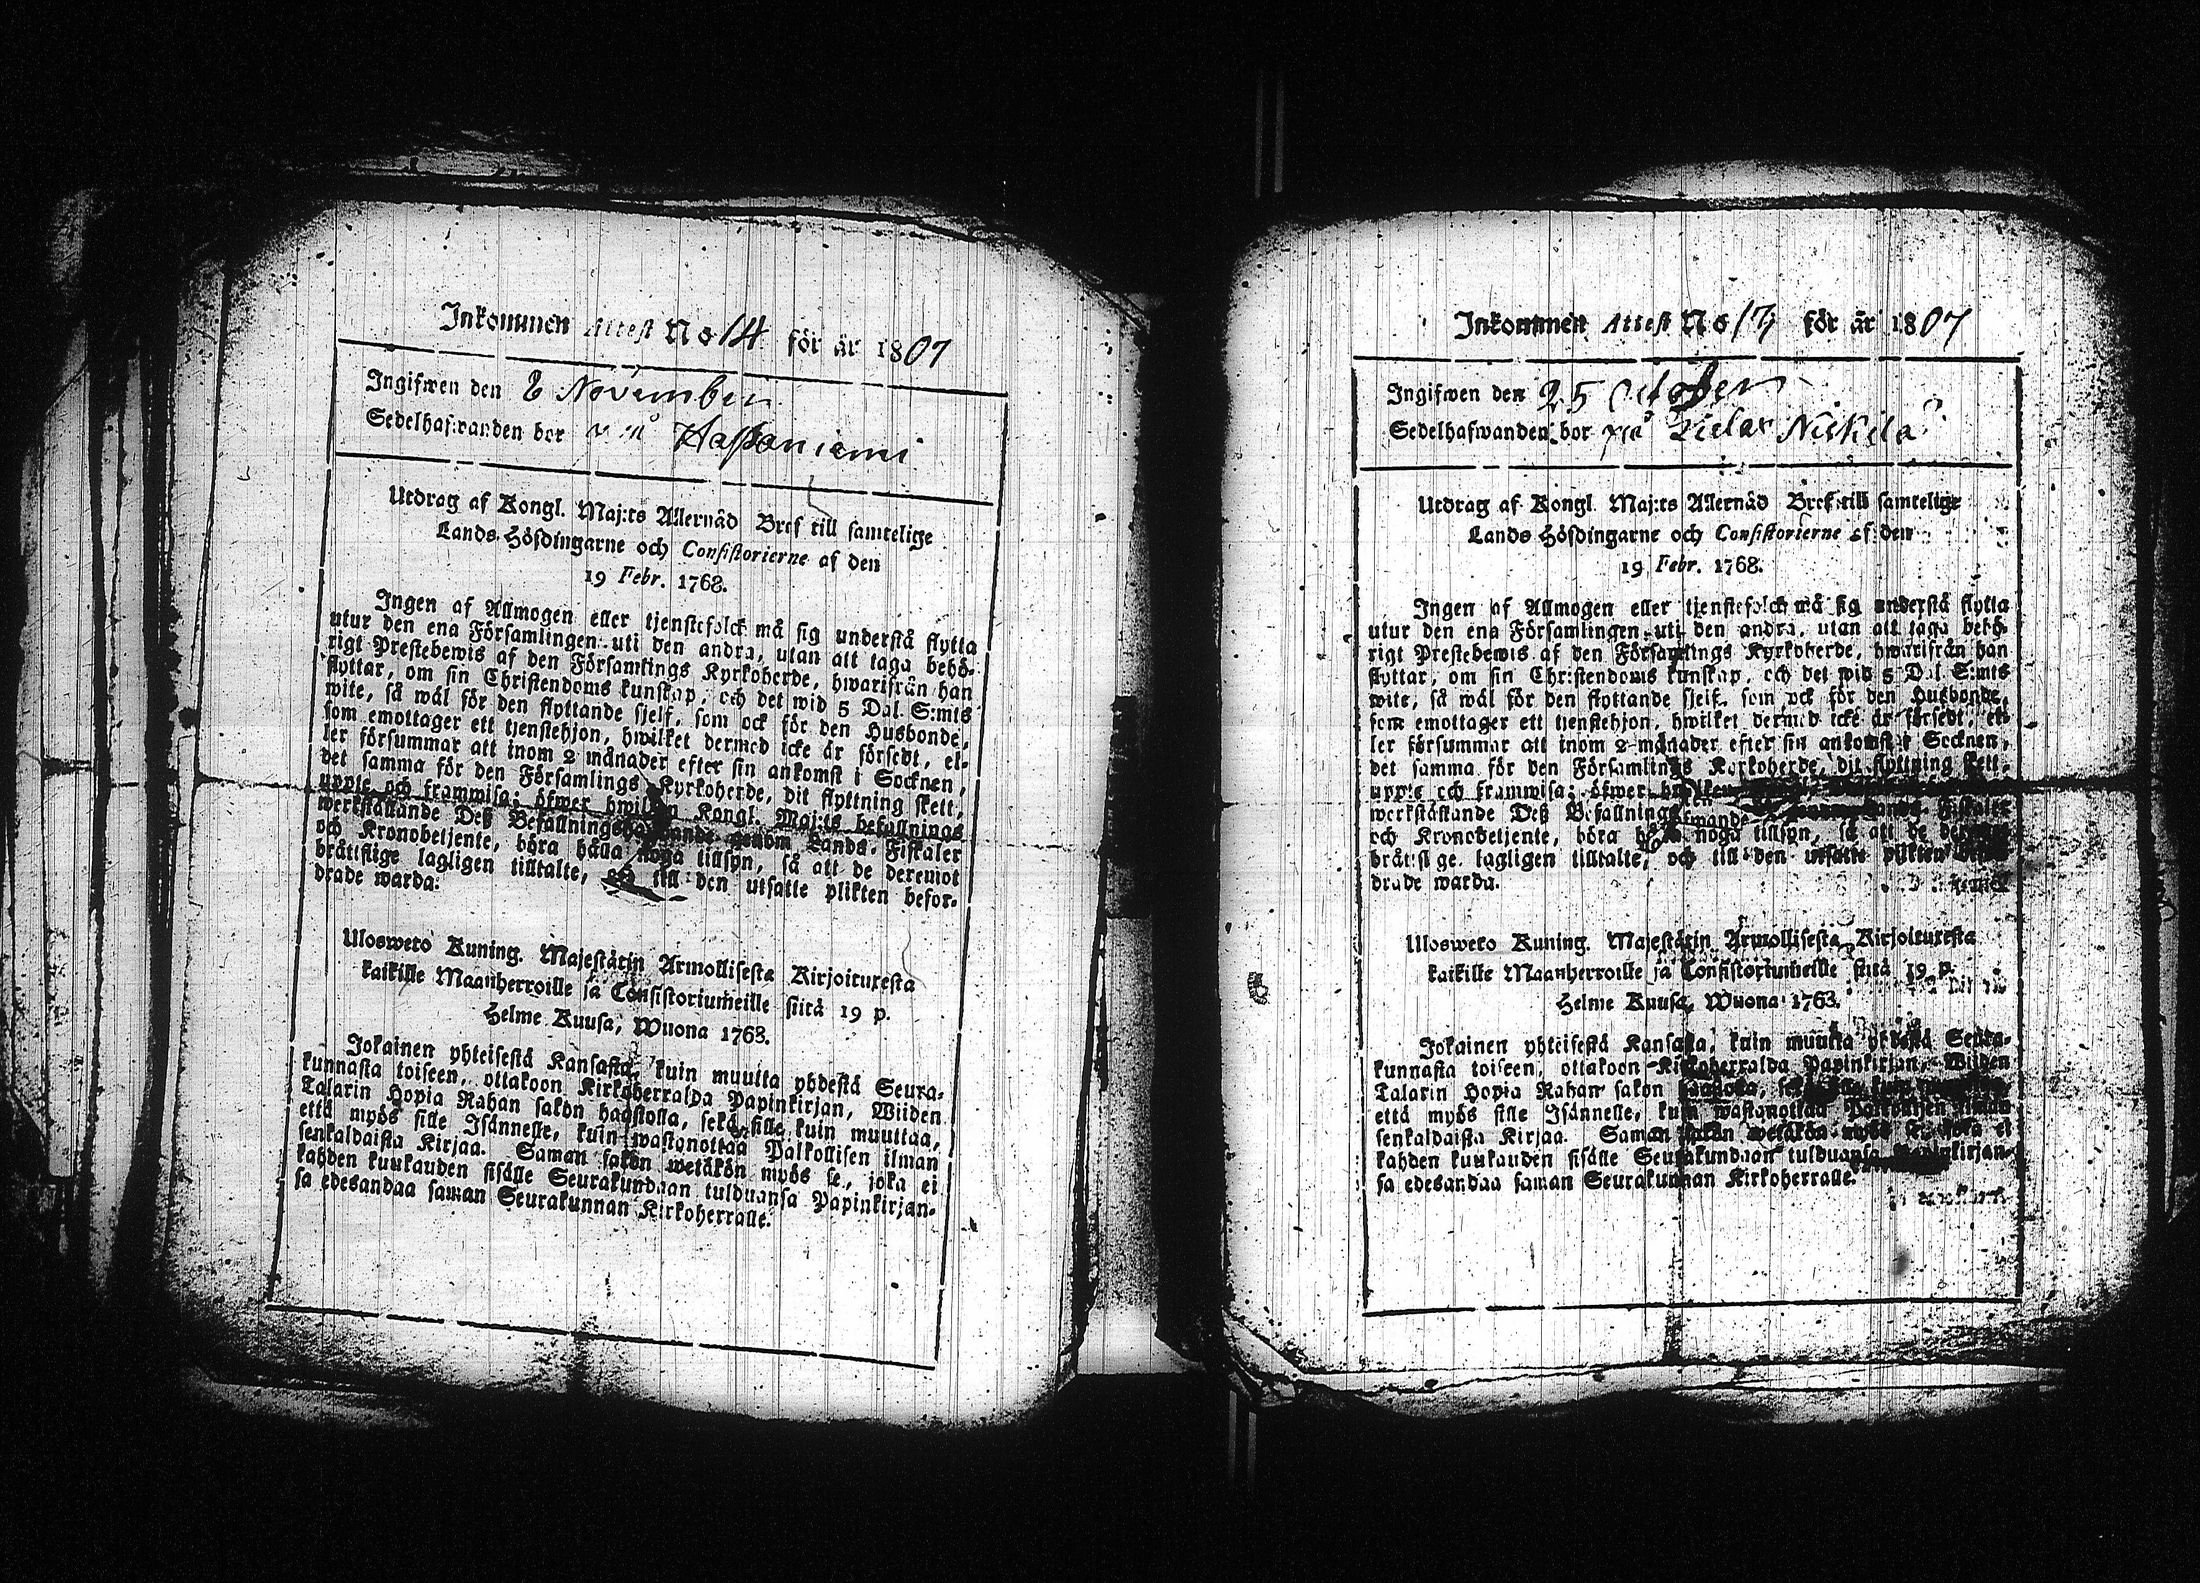 Inkommen Attest No 14 för år 1807
Ingifwen den 8 November
Sedelhafwanden bor Haapaniemi
Utdrag af Kongl. Maj:ts Allernåd Bref till samtelige
Lands Höfdingarne och Consistorierne af den
19 Febr. 1768.
Ingen af Allmogen eller tjenstefolck må sig understå flytta
utur den ena Församlingen uti den andra, utan att taga behö-
rigt Prestebewis af den Församlings Kyrkoherde, hwarifrån han
flyttar, om sin Christendoms kunskap, och det wid 5 Dal. S:mts
wite, så wäl för den flyttande sjelf, som ock för den Husbonde,
som emottager ett tjenstehjon, hwilket dermed icke är försedt, el-
ler försummar att inom 2 månader efter sin ankomst i Socknen,
det samma för den Församlings Kyrkoherde, dit flyttning skett,
uppte och framwisa; öfwer hwilken Kongl. Maj:ts befallnings
werkställande Deß Befallningshafwande genom Lands-Fiskaler
och Kronobetjente, böra hålla noga tillsyn, så att de deremot
bråttslige lagligen tilltalte, och till den utsatte plikten befor-
drade warda.
Ulosweto Kuning. Majestätin Armollisesta Kirjoituxesta
kaikille Maanherroille ja Consistoriumeille siitä 19 p.
Helme Kuusa, Wuona 1768.
Jokainen yhteisestä Kansasta, kuin muutta yhdestä Seura-
kunnasta toiseen, ottakoon Kirkoherralda Papinkirjan, Wiiden
Talarin Hopia Rahan sakon haastolla, sekä sille kuin muuttaa,
että myös sille Isännelle, kuin wastanottaa Palkollisen ilman
senkaldaista Kirjaa. Saman sakon wetäkön myös se, joka ei
kahden kuukauden sisälle Seurakundaan tulduansa Papinkirjan-
sa edesandaa saman Seurakunnan Kirkoherralle.
Inkommen Attest No 17 för år 1807
Ingifwen den 25 October
Sedelhafwanden bor på Nickila
Utdrag af Kongl. Maj:ts Allernåd Bref till samtelige
Lands Höfdingarne och Consistorierne af den
19 Febr. 1768.
Ingen af Allmogen eller tjenstefolck må sig understå flytta
utur den ena Församlingen uti den andra, utan att taga behö-
rigt Prestebewis af den Församlings Kyrkoherde, hwarifrån han
flyttar, om sin Christendoms kunskap, och det wid 5 Dal. S:mts
wite, så wäl för den flyttande sjelf, som ock för den Husbonde,
som emottager ett tjenstehjon, hwilket dermed icke är försedt, el-
ler försummar att inom 2 månader efter sin ankomst i Socknen,
det samma för den Församlings Kyrkoherde, dit flyttning skett,
uppte och framwisa; öfwer hwilken
werkställande Deß Befallningshafwande Fiskaler
och Kronobetjente, böra hålla noga tillsyn, så att de deremot
bråttslige lagligen tilltalte, och till den utsatte plikten befor-
drade warda.
Ulosweto Kuning. Majestätin Armollisesta Kirjoituxesta
kaikille Maanherroille ja Consistoriumeille siitä 19 p.
Helme Kuusa, Wuona 1768.
Jokainen yhteisestä Kansasta, kuin muutta yhdestä Seura-
kunnasta toiseen, ottakoon Kirkoherralda Papinkirjan, Wiiden
Talarin Hopia Rahan sakon haastolla,
että myös sille Isännelle, kuin wastanottaa Palkollisen ilman
senkaldaista Kirjaa. Saman sakon wetäkön myös se, joka ei
kahden kuukauden sisälle Seurakundaan tulduansa Papinkirjan-
sa edesandaa saman Seurakunnan Kirkoherralle.